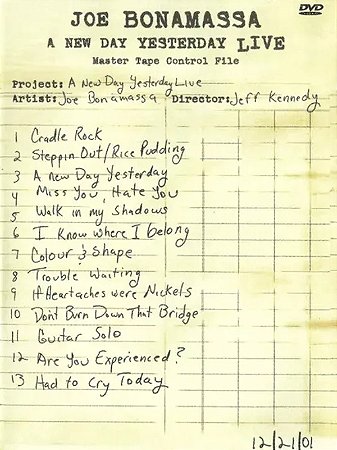 DVD
JOE BONAMASSA
A NEW DAY YESTERDAY LIVE
Master Tape Control File
Project: A New Day Yesterday Live
Artist: Joe Bonamassa Director: Jeff Kennedy
1 Cradle Rock
2 Steppin Out/Rice Pudding
3 A new Day Yesterday
4 Miss You, Hate You
5 Walk in my Shadows
6 I Know Where I belong
7 Colour & Shape
8 Trouble Waiting
9 If Heartaches were Nickels
10 Dont Burn Down That Bridge
11 Guitar Solo
12 Are You Experienced?
13 Had to Cry Today
12/21/01